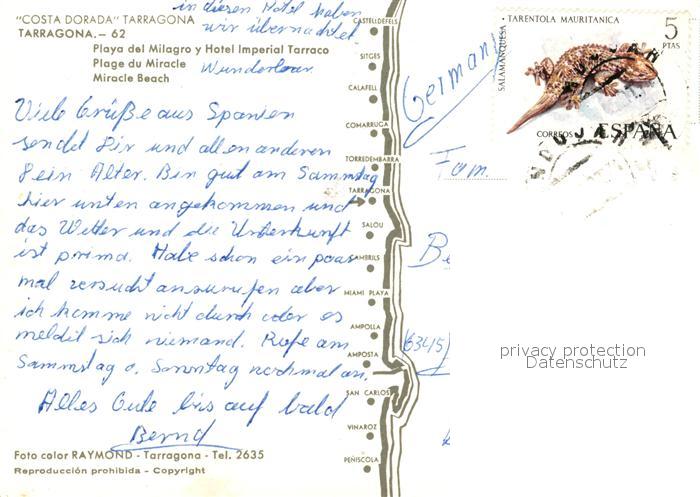 "COSTA DORADA" TARRAGONA
TARRAGONA.— 62
Playa del Milagro y Hotel Imperial Tarraco
Plage du Miracle
Miracle Beach
in diesem Hotel haben
wir übernachtet
Wunderbar
Viele Grüße aus Spanien
sendet Dir und allen anderen
Dein Alter. Bin gut am Samstag
hier unten angekommen und
das Wetter und die Unterkunft
ist prima. Habe schon ein paar
mal versucht anzurufen aber
ich komme nicht durch oder es
meldet sich niemand. Rufe am
Sammstag o. Sonntag nochmal an.
Alles Gute bis auf bald
Bernd
Foto color RAYMOND - Tarragona - Tel. 2635
Reproducción prohibida - Copyright
CASTELLDEFELS
SITGES
CALAFELL
COMARRUGA
TORREDEMBARRA
TARRAGONA
SALOU
CAMBRILS
MIAMI PLAYA
AMPOLLA
AMPOSTA
SAN CARLOS
VINAROZ
PEÑISCOLA
Germany
Fam.
(6345)
SALAMANQUESA
TARENTOLA MAURITANICA
5
PTAS
CORREOS ESPAÑA
privacy protection
Datenschutz